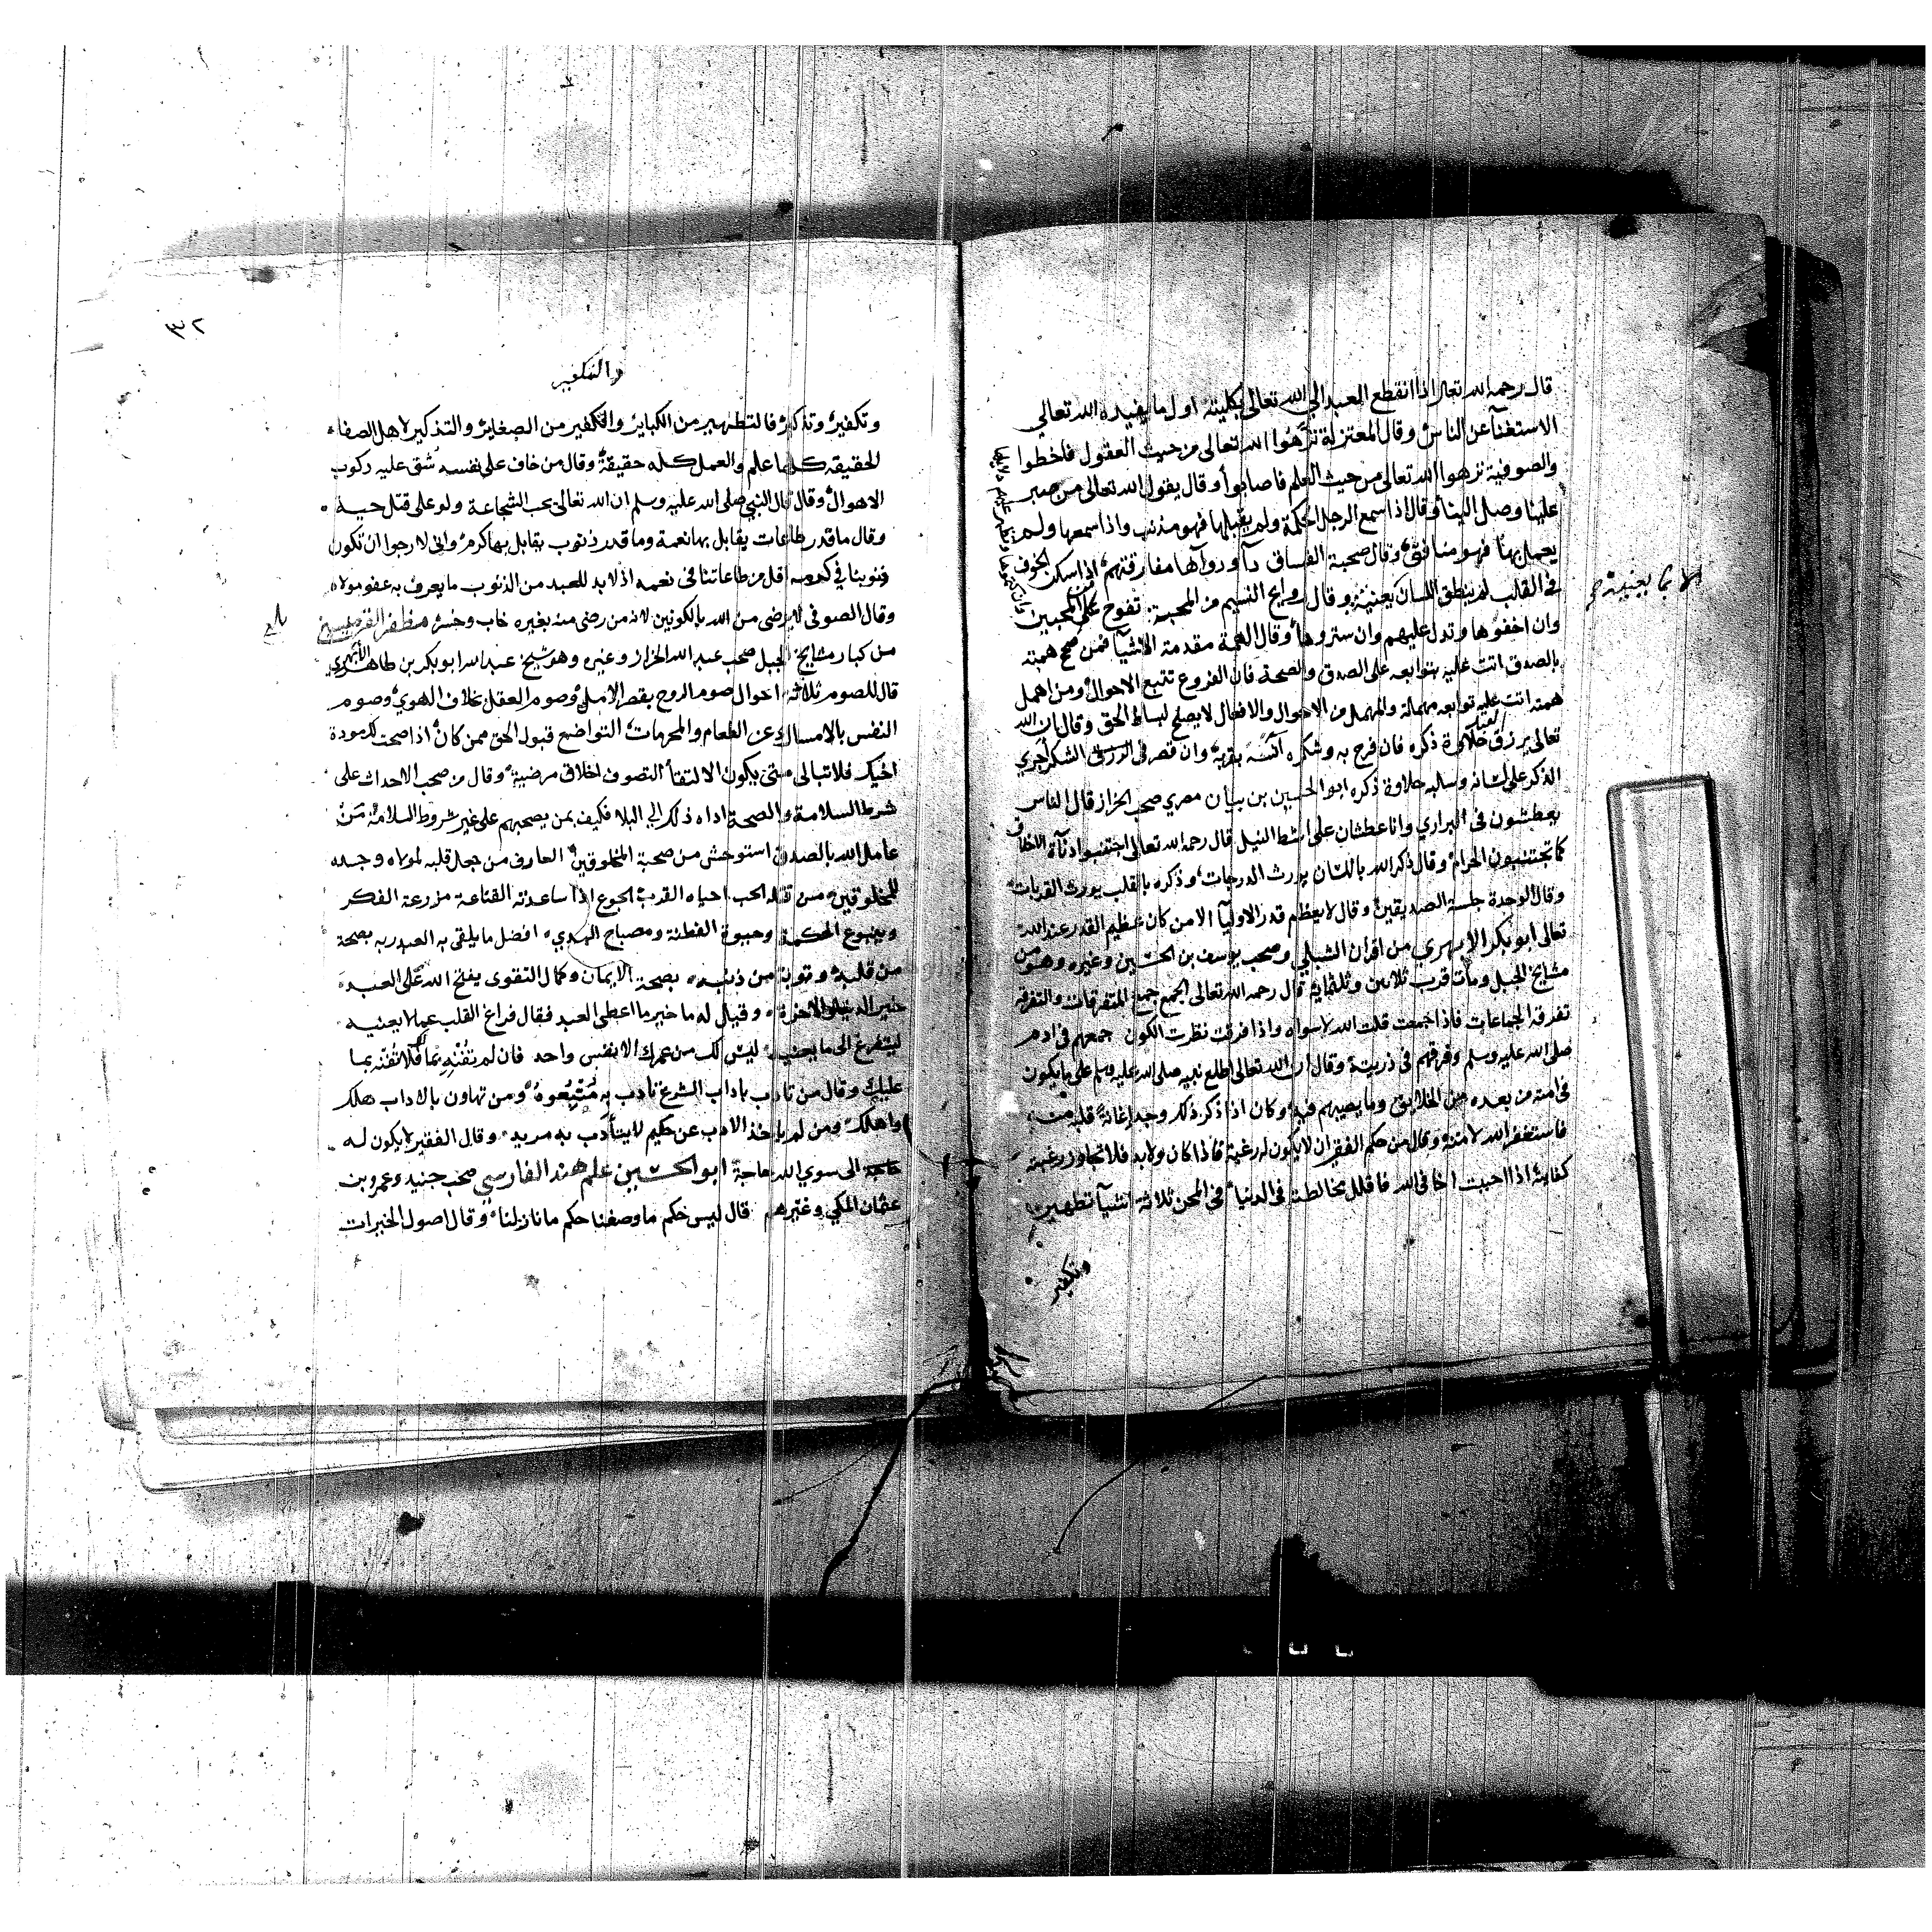 قال رحمه الله تعالى اذا انقطع العبد الي الله تعالى بكليته اول ما يفيده الله تعالي
الاستغنآ عن الناس وقال المعتزلة نزهوا الله تعالى من حيث العقول فاخطوا
والصوفية نزهوا الله تعالى من حيث العلم فاصابوا وقال يقول الله تعالى من صبر
علينا وصل الينا وقال اذا سمع الرجل الحكمة ولم يقبلها فهو مذنب واذا سمعها ولم
يعمل بها فهو منافق وقال صحبة الفساق دآ ودوآها مفارقتهم اذا سكن الخوف
في القلب لم ينطق اللسان بعنيه وقال روايح النسيم من المحبة تفوح على المحبين
الا بما يعنيه
وان اخفوها وتدل عليهم وان ستروها وقال الهمة مقدمة الاشيآ فمن صح همته
بالصدق اتت عليه توابعه على الصدق والصحة فان الفروع تتبع الاحوال ومن اهمل
همته اتت عليه توابعه مهملة والمهمل من الاحوال والافعال لا يصلح لبساط الحق وقال ان الله
تعالى يرزق العبد حلاوة ذكره فان فرح به وشكره آنسه بقربه وان قصر في الشكر اجري
الذكر على لسانه وسلبه حلاوة ذكره ابو الحسين بن بنان مصري صحب الخراز قال الناس
يعطشون في البراري وانا عطشان على شط النيل قال رحمه الله تعالى اجتنبوا دنآة الاخلاق
كما تجتنبون الحرام وقال ذكر الله باللسان يورث الدرجات وذكره بالقلب يورث القربات
وقال الوحدة جلسة الصديقين وقال لا يعظم قدر الاوليآ الا من كان عظيم القدر عند الله
تعالى ابو بكر الابهري من اقران الشبلي وصحب يوسف بن الحسين وغيره وهو من
مشايخ الجبل ومات قرب ثلاثين وثلثماية قال رحمه الله تعالى الجمع جمع المتفرقات والتفرقه
تفرقة الجماعات فاذا جمعت قلت الله لا سواه واذا فرقت نظرت الكون جمعهم في ادم
صلى الله عليه وسلم وفرقهم في ذريته وقال ان الله تعالى اطلع نبيه صلى الله عليه وسلم على ما يكون
في امته من بعده من الخلاف وما يصيبهم فيه وكان اذا ذكر ذلك وجد اغانة قلبه منه
فاستغفر الله لامته وقال من حكم الفقير ان لا يكون له رغبة فاذا كان ولا بد فلا تجاوز رغبته
كفايته اذا احببت اخا في الله فاقلل مخالطته في الدنيا في المحن ثلاثة اشيآ تطهير
وتكفير
٣٢
والتكفير
وتكفير وتذكير فالتطهير من الكباير والتكفير من الصغاير والتذكير لاهل الصفا
الحقيقه كلها علم والعمل كله حقيقة وقال من خاف على نفسه شق عليه ركوب
الاهوال وقال قال النبي صلى الله عليه وسلم ان الله تعالى يحب الشجاعة ولو على قتل حية
وقال ما قدر طاعات يقابل بها نعمة وما قدر ذنوب يقابل بها كرم واني لارجوا ان تكون
ذنوبنا في كرمه اقل من طاعاتنا في نعمه اذ لا بد للعبد من الذنوب ما يعرف به عفو مولاه
وقال الصوفي لا يرضى من الله بالكونين لانه من رضى منه بغيره خاب وخسر مظفر القرميسيني
من كبار مشايخ الجبل صحب عبد الله الخراز وغيره وهو شيخ عبد الله ابو بكر بن طاهر الابهري
قال للصوم ثلاثة احوال صوم الروح بقصر الامل وصوم العقل بخلاف الهوي وصوم
النفس بالامساك عن الطعام والمحرمات التواضع قبول الحق ممن كان اذا صحت مودة
اخيك فلا تبالى متى يكون الالتقآ التصوف اخلاق مرضية وقال من صحب الاحداث على
شرط السلامة والصحة اداه ذلك الى البلا فكيف بمن يصحبهم على غير شروط السلامة من
عامل الله بالصدق استوحش من صحبة المخلوقين العارف من جعل قلبه لمولاه وجسده
للمخلوقين من قتله الحب احياه القرب الجوع اذا ساعدته القناعة مزرعة الفكر
وينبوع الحكمة وحيوة الفطنة ومصباح الهدي افضل ما يلقى به العبد ربه بصحة
من قلبه وتوبة من ذنبه بصحة الايمان وكمال التقوى يفتح الله على العبد
خير الدنيا والاخرة وقيل له ما خير ما اعطى العبد فقال فراغ القلب عما لا يعنيه
ليتفرغ الى ما يعنيه ليس لك من عمرك الا نفس واحد فان لم تفنه بما لك فلا تفنه بما
عليك وقال من تادب باداب الشرع تادب به متبعوه ومن تهاون بالاداب هلك
واهلك ومن لم ياخذ الادب عن حكيم لا يتأدب به مريد وقال الفقير لا يكون له
حاجة الى سوي الله حاجة ابو الحسين علم هند الفارسي صحب جنيد وعمرو بن
عثمان المكي وغيرهم قال ليس حكم ما وصفنا حكم ما نازلنا وقال اصول الخيرات